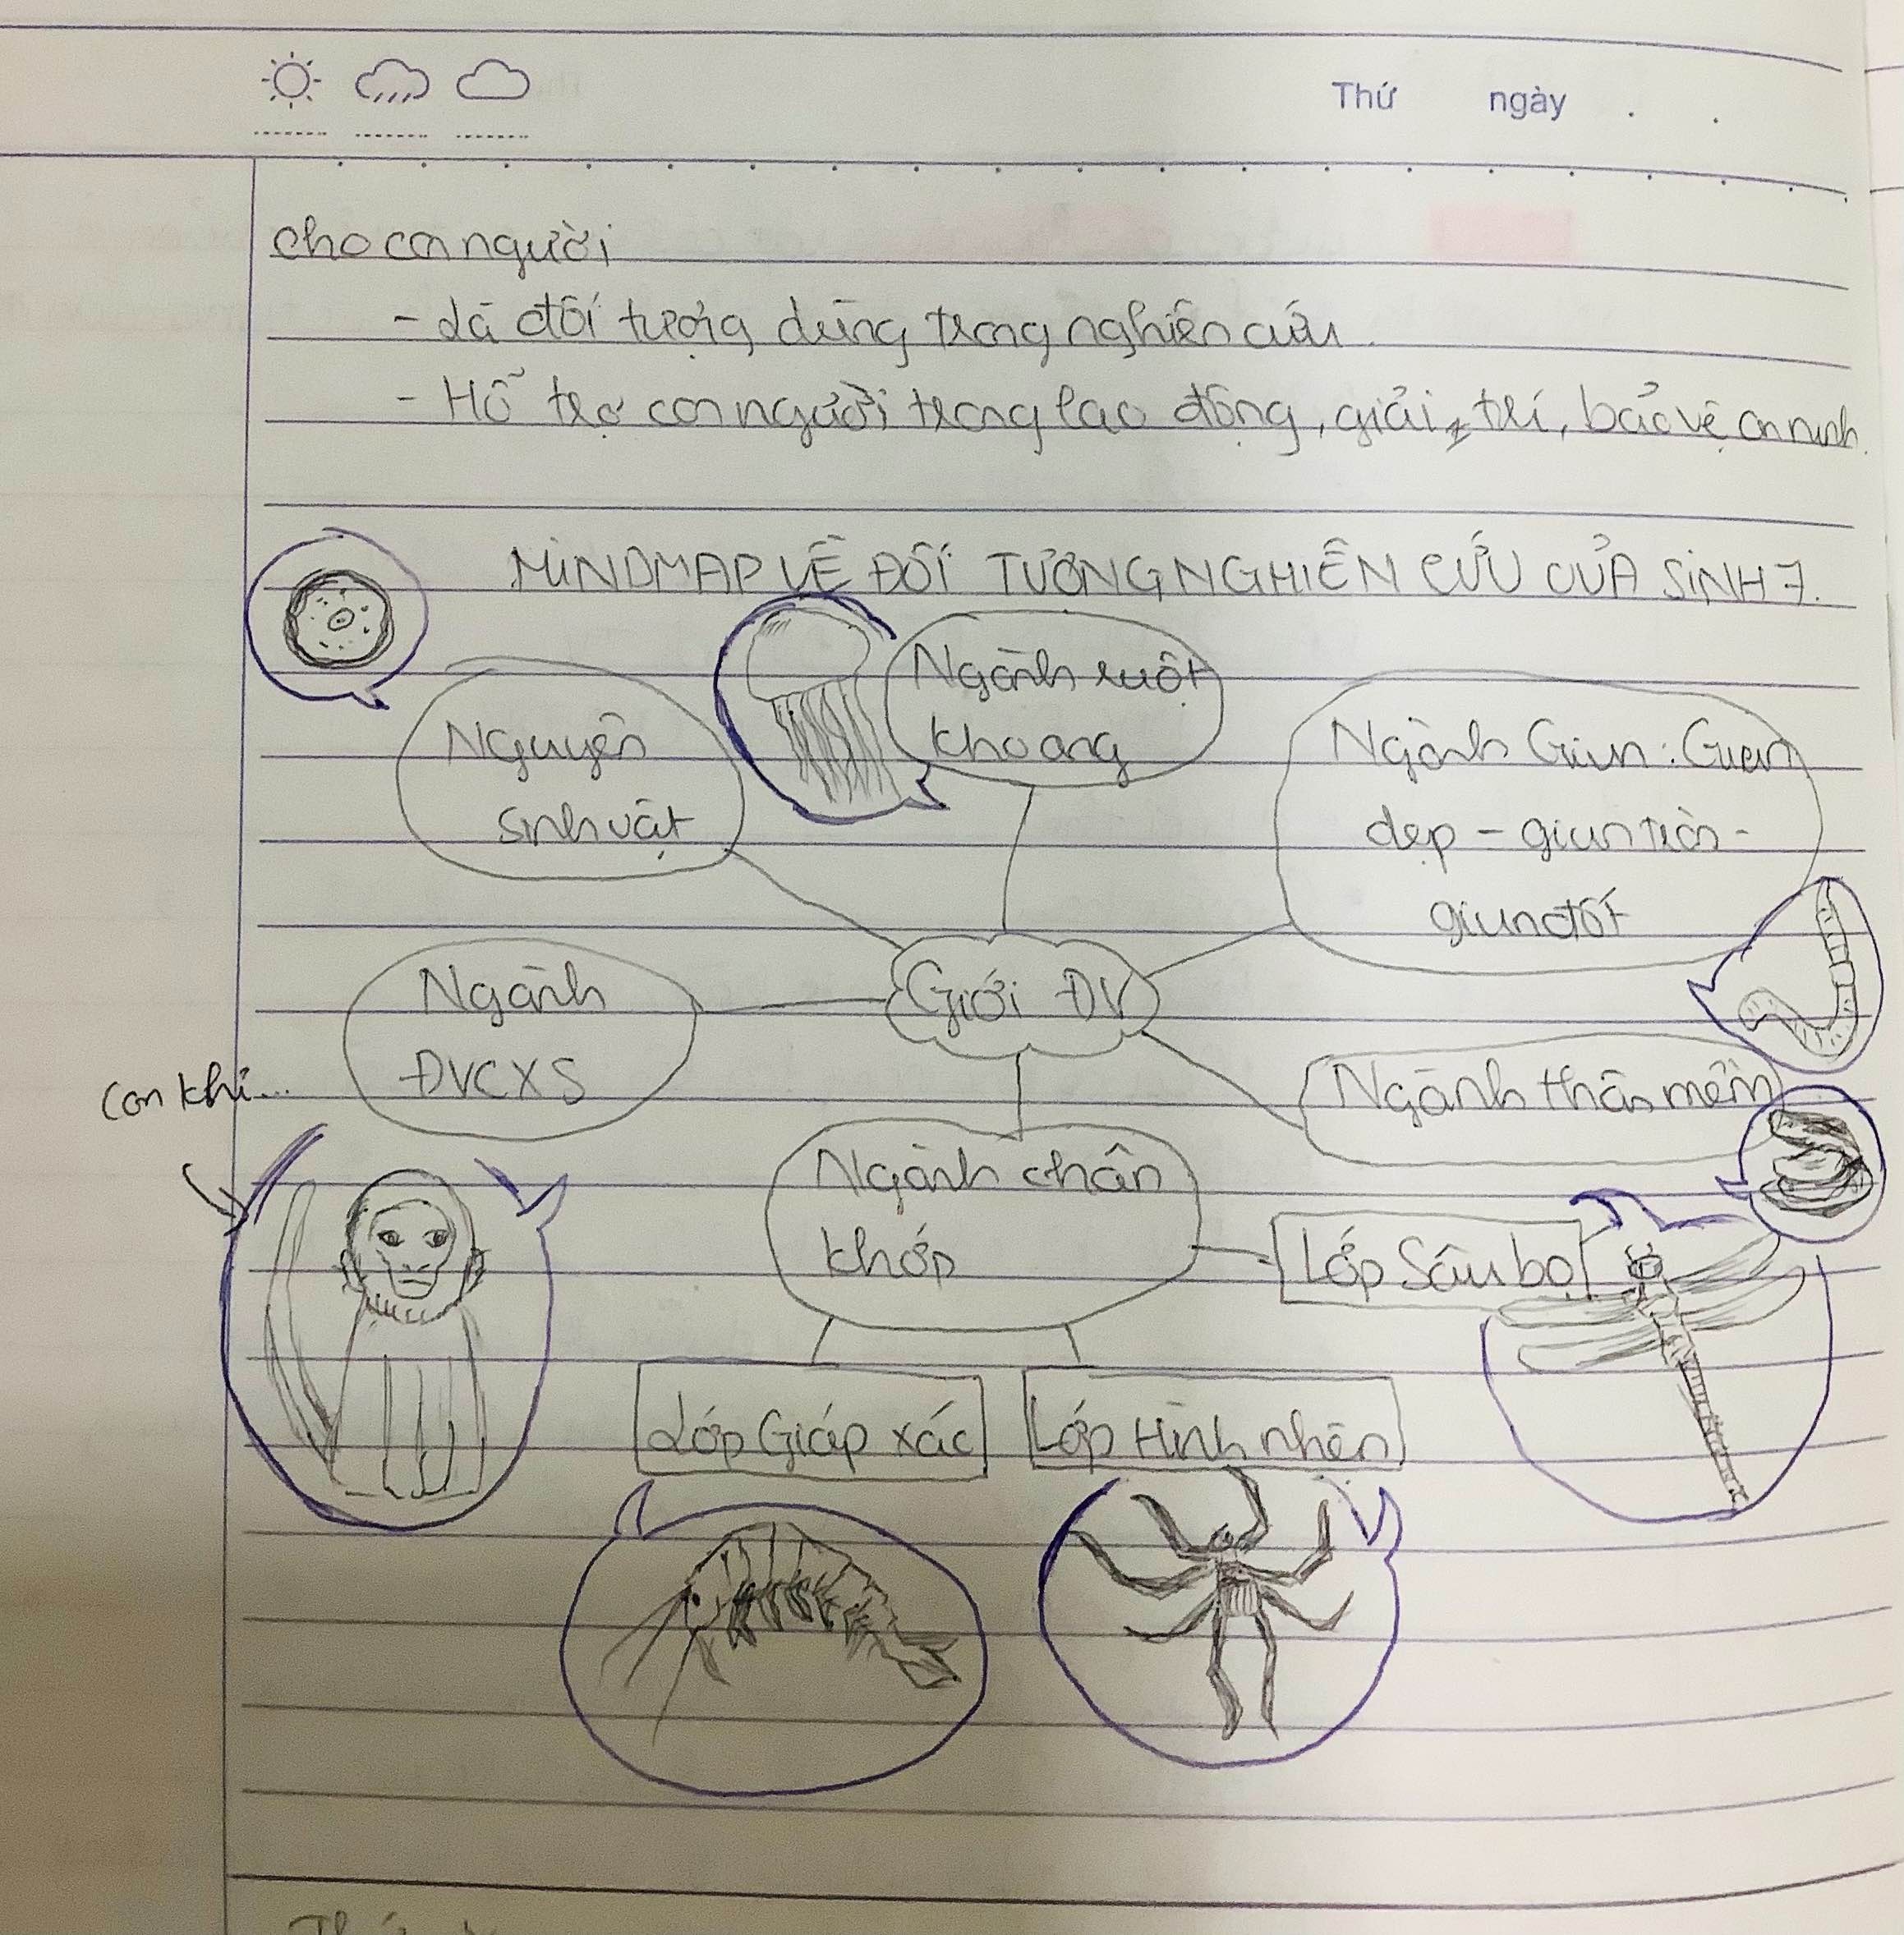 Thứ ngày . .
cho con người
- Là đối tượng dùng trong nghiên cứu
- Hỗ trợ con người trong lao động, giải trí, bảo vệ an ninh.
MINDMAP VỀ ĐỐI TƯỢNG NGHIÊN CỨU CỦA SINH 7.
Ngành ruột
khoang
Nguyên
sinh vật
Ngành Giun: Giun
dẹp - giun tròn -
giun đốt
Giới ĐV
Ngành
ĐVCXS
con khỉ...
Ngành thân mềm
Ngành chân
khớp
Lớp Sâu bọ
Lớp Giáp xác
Lớp Hình nhện